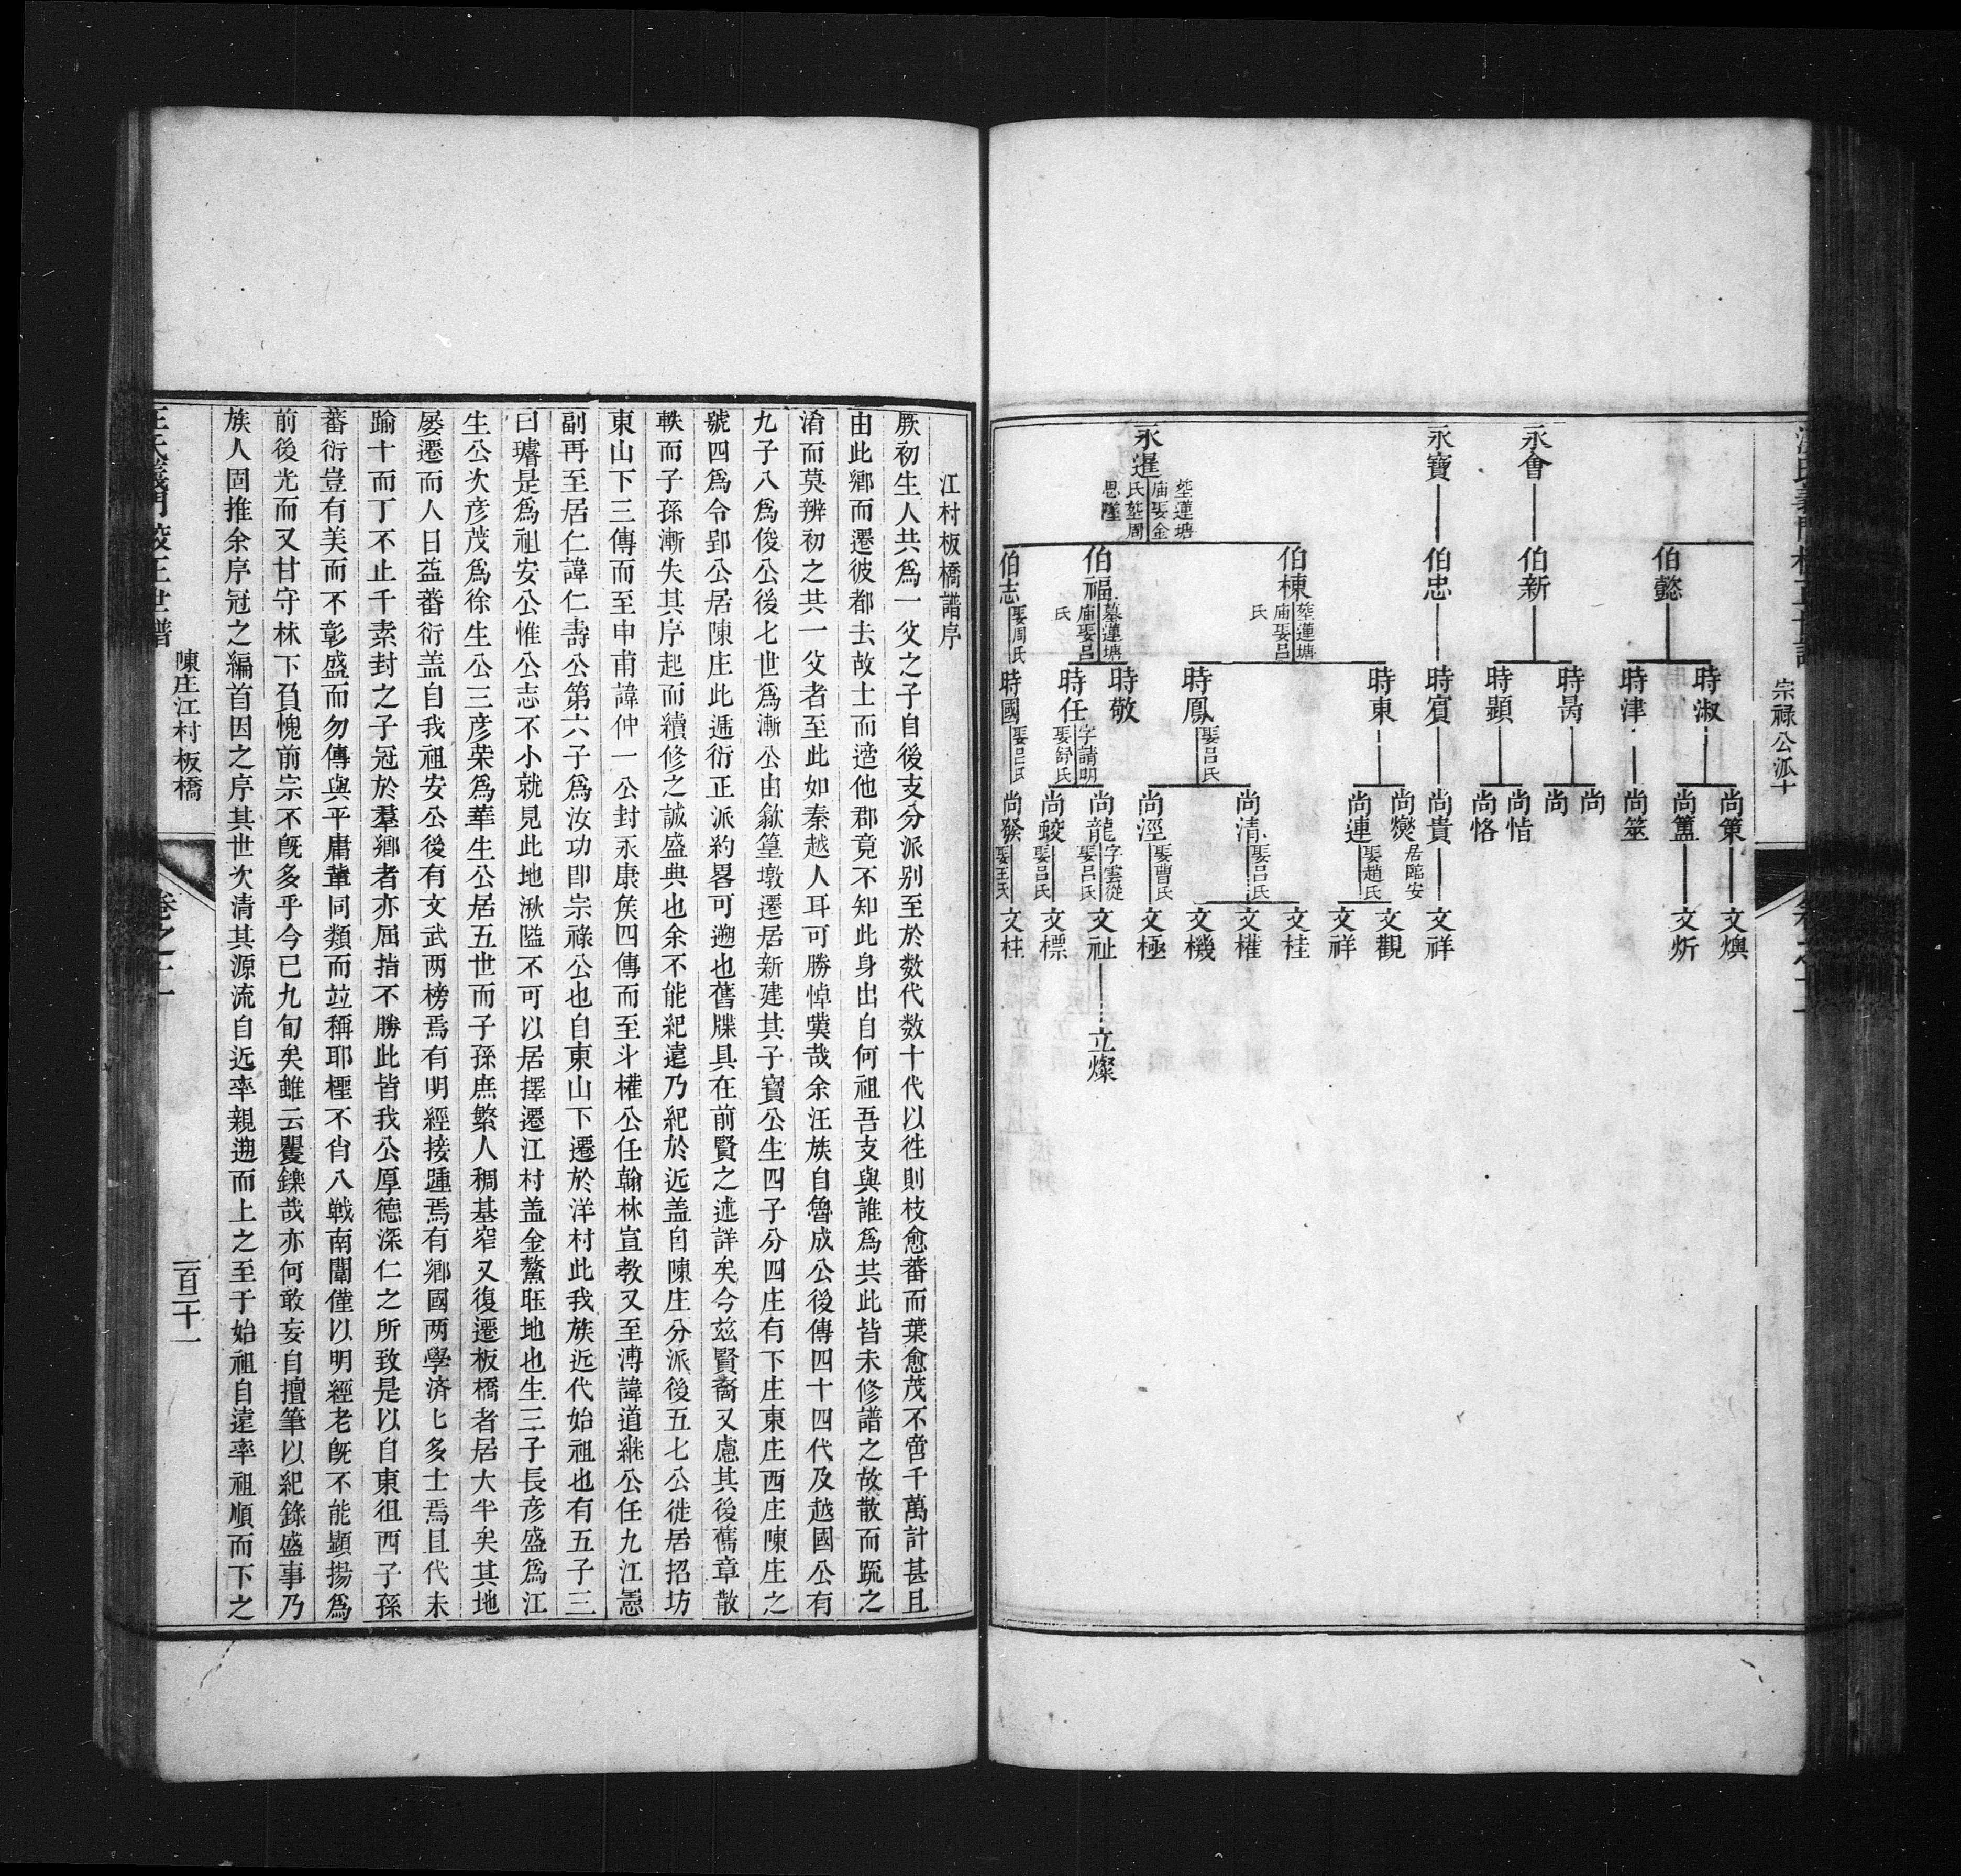 宗祿公派十
永會
永寶
永暹
塟蓮塘
庙娶金
氏塟周
思墐
伯懿
伯新
伯忠
伯棟
塟蓮塘
庙娶呂
氏
伯福
墓蓮塘
庙娶呂
氏
伯志
娶周氏
時淑
時津
時暠
時顕
時賓
時東
時鳳
娶呂氏
時敬
時任
字請明
娶舒氏
時國
娶呂氏
尚策
尚簠
尚筮
尚
尚
尚惜
尚恪
尚貴
尚爕
居臨安
尚連
娶趙氏
尚清
娶呂氏
尚涇
娶曹氏
尚龍
字雲從
娶呂氏
尚蛟
娶呂氏
尚發
娶王氏
文燠
文炘
文祥
文觀
文祥
文桂
文權
文機
文極
文祉
文標
文柱
立燦
江村板橋譜序
厥初生人共爲一父之子自後支分派别至於数代数十代以徃則枝愈蕃而葉愈茂不啻千萬計甚且
由此鄉而遷彼都去故土而適他郡竟不知此身出自何祖吾支與誰爲共此皆未修譜之故散而䟽之
淆而莫辨初之共一父者至此如秦越人耳可勝悼歎哉余汪族自魯成公後傳四十四代及越國公有
九子八爲俊公後七世爲漸公由歙篁墩遷居新建其子寶公生四子分四庄有下庄東庄西庄陳庄之
號四爲令郢公居陳庄此逓衍正派約畧可遡也舊牒具在前賢之述詳矣今茲賢裔又慮其後舊章散
軼而子孫漸失其序起而續修之誠盛典也余不能紀遠乃紀於近盖自陳庄分派後五七公徙居招坊
東山下三傳而至申甫諱仲一公封永康矦四傳而至斗權公任翰林宣教又至溥諱道継公任九江憲
副再至居仁諱仁壽公第六子爲汝功卽宗祿公也自東山下遷於洋村此我族近代始祖也有五子三
曰璿是爲祖安公惟公志不小就見此地湫隘不可以居擇遷江村盖金鰲匡地也生三子長彦盛爲江
生公次彦茂爲徐生公三彦荣爲華生公居五世而子孫庶繁人稠基窄又復遷板橋者居大半矣其地
屡遷而人日益蕃衍盖自我祖安公後有文武两榜焉有明經接踵焉有鄉國两學济匕多士焉且代未
踰十而丁不止千素封之子冠於羣鄉者亦屈指不勝此皆我公厚德深仁之所致是以自東徂西子孫
蕃衍豈有美而不彰盛而勿傳與平庸輩同類而竝稱耶極不肖八戦南闈僅以明經老旣不能顕揚爲
前後光而又甘守林下負愧前宗不旣多乎今已九旬矣雖云矍鑠哉亦何敢妄自擅筆以紀錄盛事乃
族人固推余序冠之編首因之序其世次清其源流自近率親遡而上之至于始祖自遠率祖順而下之
汪氏義門校正世譜
陳庄江村板橋
卷之十二
一百二十一